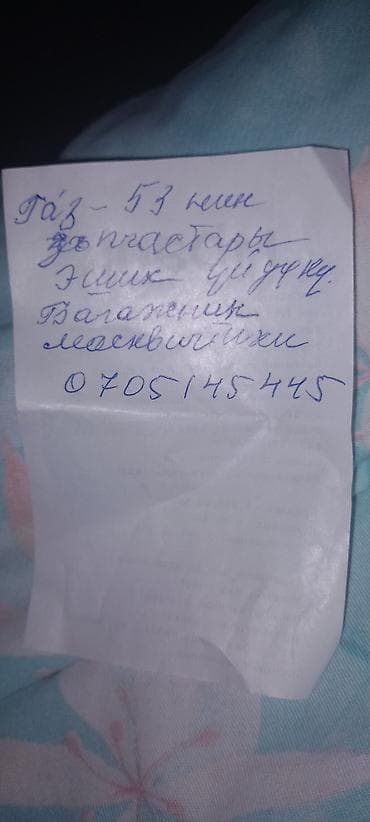 Газ - 53 нин
запчастары
Эшик үйдүкү.
Багажник
москвичтики
0705145445